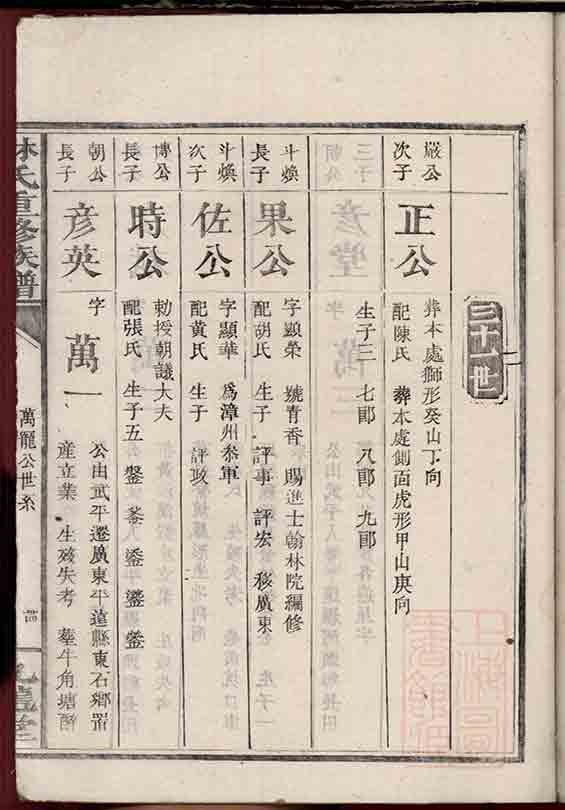 三十一世
嚴公次子
正公
葬本處獅形癸山丁向
配陳氏 葬本處側面虎形甲山庚向
生子三 七郎 八郎 九郎
斗煥長子
果公
字顯榮 號青香 賜進士翰林院編修
配胡氏 生子 評事 評宏 移廣東
斗煥次子
佐公
字顯華 為漳州叅軍
配黃氏 生子 評政
博公長子
時公
勅授朝議大夫
配張氏 生子五
朝公長子
彦英
字 萬一
公由武平遷廣東平遠縣東石鄉置
產立業 生殁失考 塟牛角塘
林氏重修族譜
萬寵公世系